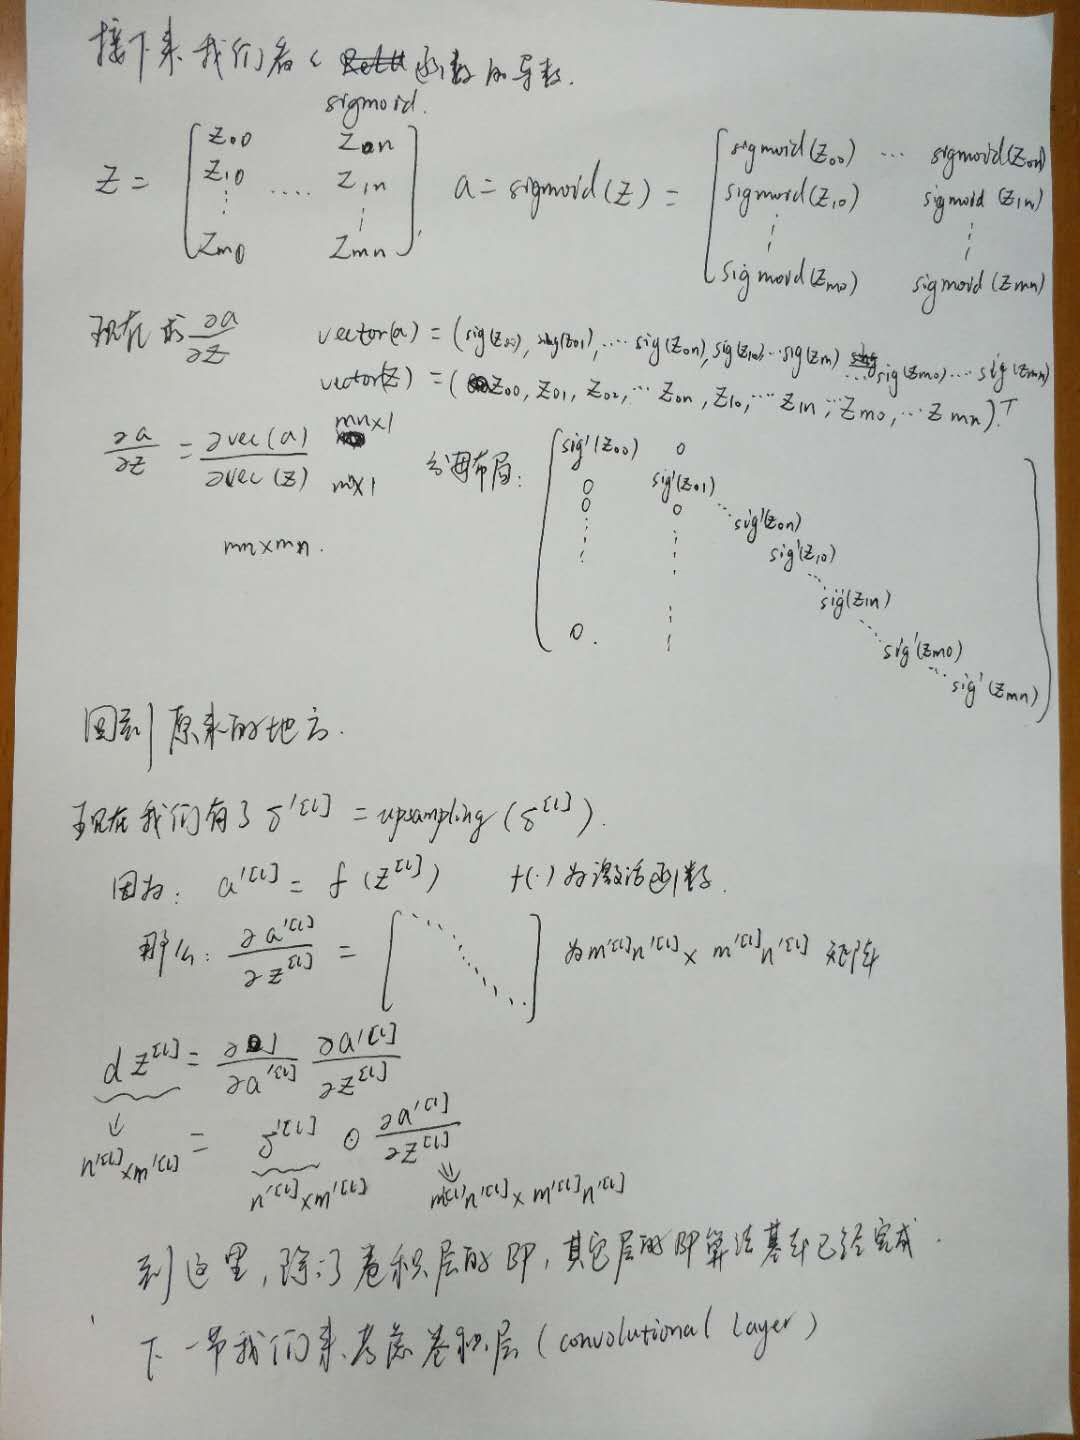 接下来我们看 函数的导数.
sigmoid.
Z = [ Z00 Z0n
Z10 ..... Z1n
⋮ ⋮
Zm0 Zmn ],
a = sigmoid(Z) = [ sigmoid(Z00) ... sigmoid(Z0n)
sigmoid(Z10) sigmoid(Z1n)
⋮ ⋮
sigmoid(Zm0) sigmoid(Zmn)
现在求 ∂a/∂Z
vector(a) = (sig(Z00), sig(Z01), .... sig(Z0n), sig(Z10)...sig(Z1n) ... sig(Zm0) ... sig(Zmn)
vector(Z) = (Z00, Z01, Z02, ... Z0n, Z10, ... Z1n, ; Zm0, ... Zmn)T.
∂a/∂Z = ∂vec(a)/∂vec(Z) mn×1
m×1
mn×mn.
分母布局: [ sig'(Z00) 0
0 sig'(Z01)
0 0 ... sig'(Z0n)
sig'(Z10)
sig'(Z1n)
0. sig'(Zm0)
sig'(Zmn) ]
回到原来的地方.
现在我们有了 δ'[l] = upsampling(δ[l]).
因为: a'[l] = f(Z[l]) f(·)为激活函数.
那么: ∂a'[l]/∂Z[l] = [ ⋱ ] 为m'[l]n'[l] × m'[l]n'[l] 矩阵
dZ[l] = ∂J/∂a'[l] ∂a'[l]/∂Z[l]
↓
n'[l]×m'[l] = δ'[l] ⊙ ∂a'[l]/∂Z[l]
n'[l]×m'[l] m[l]'n'[l] × m'[l]n'[l]
到这里, 除了卷积层的BP, 其它层的BP算法基本已经完成.
下一节我们来考虑卷积层(convolutional layer)